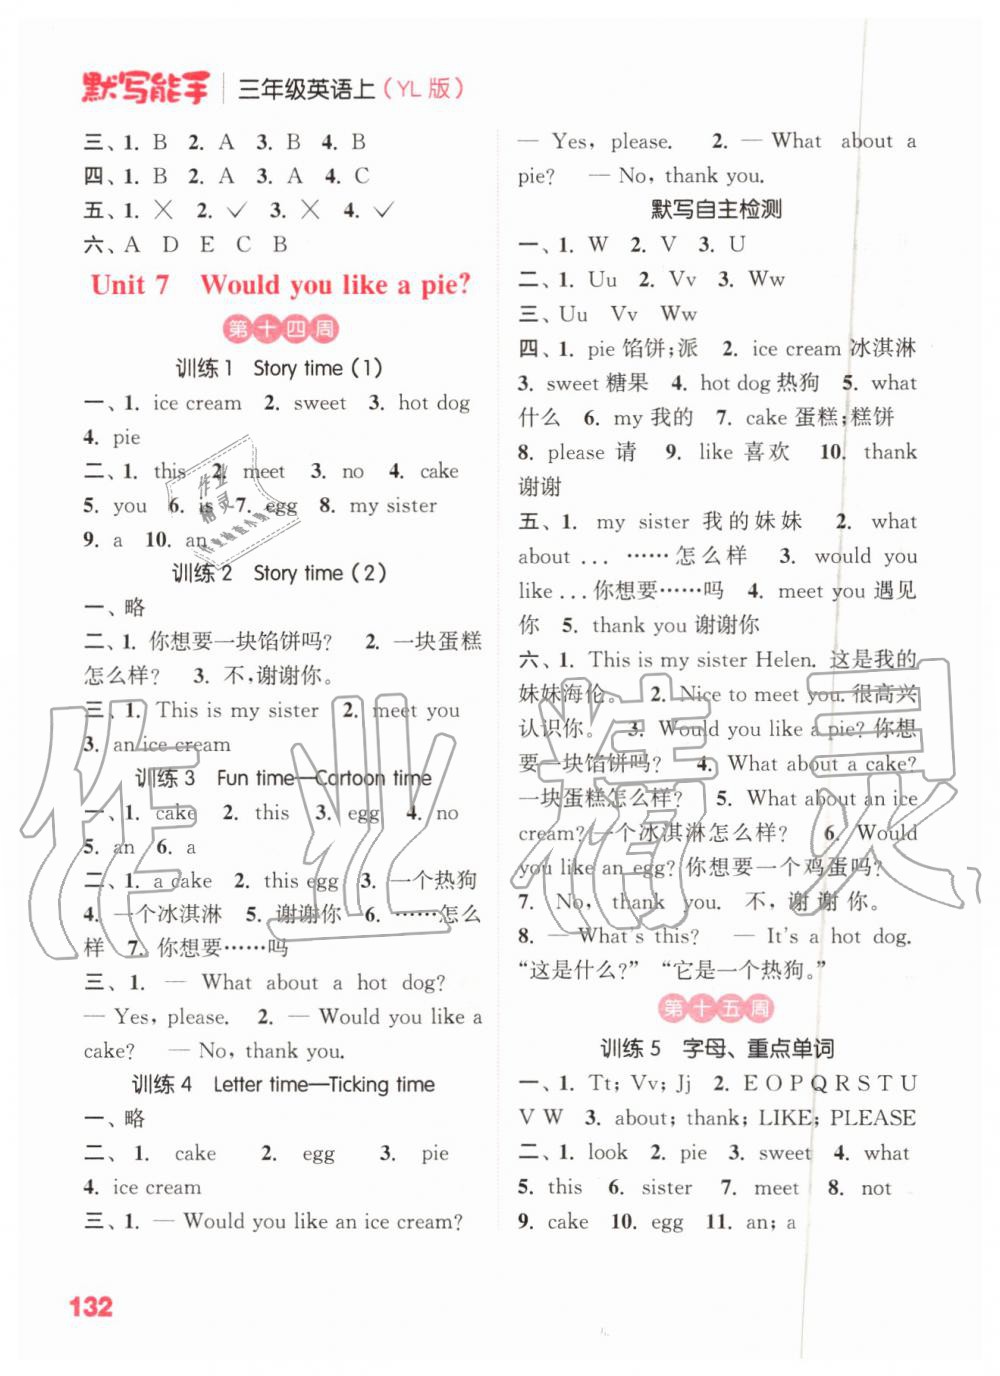 默写能手 三年级英语上(YL 版)
三、1. B 2. A 3. B 4. B
四、1. B 2. A 3. A 4. C
五、1. ✕ 2. ✓ 3. ✕ 4. ✓
六、A D E C B
Unit 7 Would you like a pie?
第十四周
训练1 Story time (1)
一、1. ice cream 2. sweet 3. hot dog
4. pie
二、1. this 2. meet 3. no 4. cake
5. you 6. is 7. egg 8. my sister
9. a 10. an
训练2 Story time (2)
一、略
二、1. 你想要一块馅饼吗? 2. 一块蛋糕
怎么样? 3. 不,谢谢你。
三、1. This is my sister 2. meet you
3. an ice cream
训练3 Fun time—Cartoon time
一、1. cake 2. this 3. egg 4. no
5. an 6. a
二、1. a cake 2. this egg 3. 一个热狗
4. 一个冰淇淋 5. 谢谢你 6. ……怎么
样 7. 你想要……吗
三、1. — What about a hot dog?
— Yes, please. 2. — Would you like a
cake? — No, thank you.
训练4 Letter time—Ticking time
一、略
二、1. cake 2. egg 3. pie
4. ice cream
三、1. — Would you like an ice cream?
— Yes, please. 2. — What about a
pie? — No, thank you.
默写自主检测
一、1. W 2. V 3. U
二、1. Uu 2. Vv 3. Ww
三、Uu Vv Ww
四、1. pie 馅饼;派 2. ice cream 冰淇淋
3. sweet 糖果 4. hot dog 热狗 5. what
什么 6. my 我的 7. cake 蛋糕;糕饼
8. please 请 9. like 喜欢 10. thank
谢谢
五、1. my sister 我的妹妹 2. what
about ... ……怎么样 3. would you
like ... 你想要……吗 4. meet you 遇见
你 5. thank you 谢谢你
六、1. This is my sister Helen. 这是我的
妹妹海伦。 2. Nice to meet you. 很高兴
认识你。 3. Would you like a pie? 你想
要一块馅饼吗? 4. What about a cake?
一块蛋糕怎么样? 5. What about an ice
cream? 一个冰淇淋怎么样? 6. Would
you like an egg? 你想要一个鸡蛋吗?
7. No, thank you. 不,谢谢你。
8. — What's this? — It's a hot dog.
“这是什么?” “它是一个热狗。”
第十五周
训练5 字母、重点单词
一、1. Tt; Vv; Jj 2. E O P Q R S T U
V W 3. about; thank; LIKE; PLEASE
二、1. look 2. pie 3. sweet 4. what
5. this 6. sister 7. meet 8. not
9. cake 10. egg 11. an; a
132
作业精灵